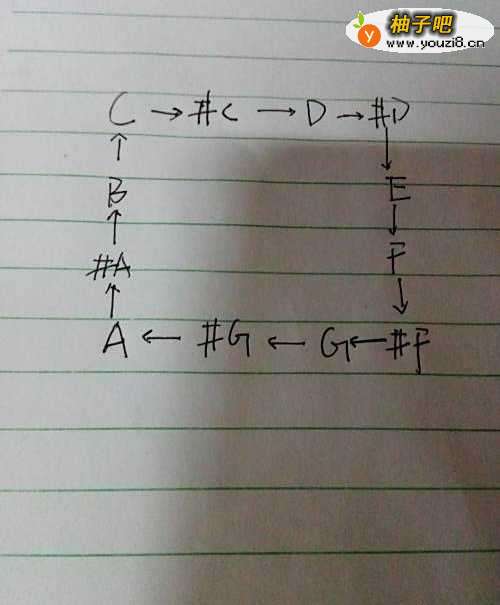 柚子吧
www.youzi8.cn
C → #C → D → #D
↑ ↓
B E
↑ ↓
#A F
↑ ↓
A ← #G ← G ← #F